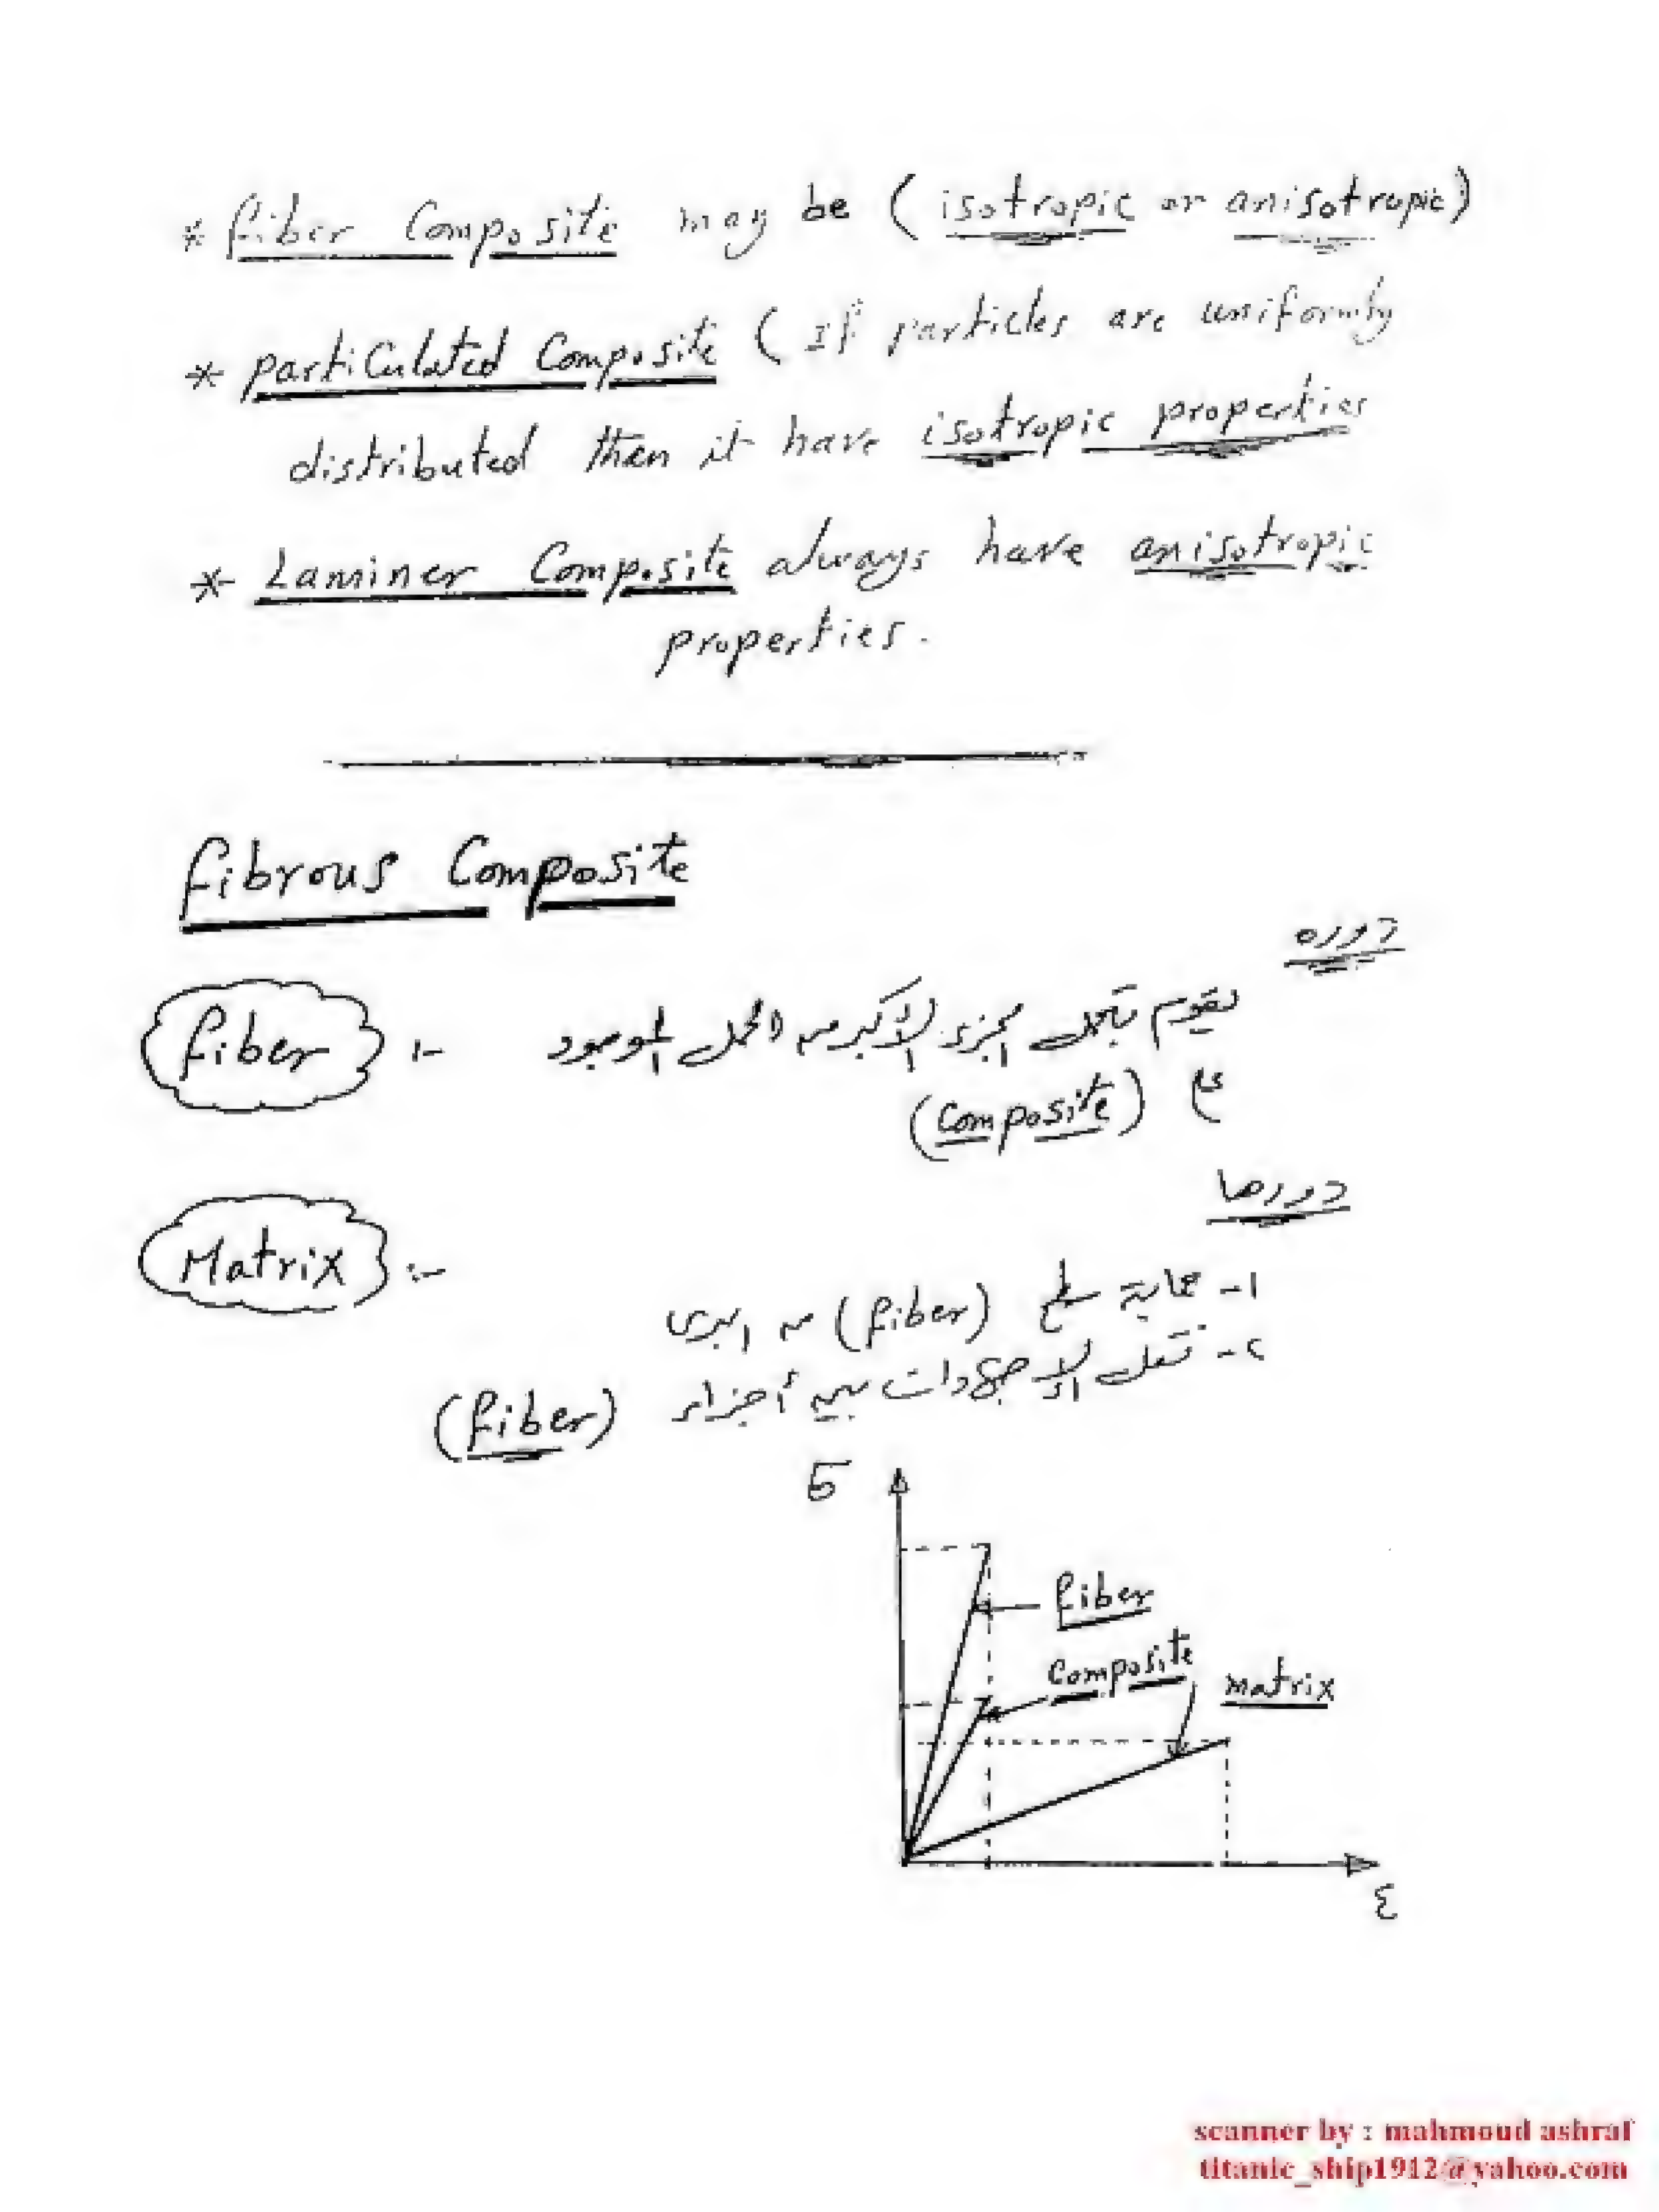 * fiber Composite may be (isotropic or anisotropic)
* particulated Composite (If particles are uniformly
distributed then it have isotropic properties
* Laminer Composite always have anisotropic
properties.
fibrous Composite
دوره
fiber :- يقوم بتحمل الجزء الأكبر من الحمل الموجود
في (Composite)
دورها
Matrix :-
١- حماية سطح (fiber) من البرى
٢- تنقل الاجهادات بين أجزاء (fiber)
σ
fiber
Composite
matrix
ε
scanner by : mahmoud ashraf
titanic_ship1912@yahoo.com